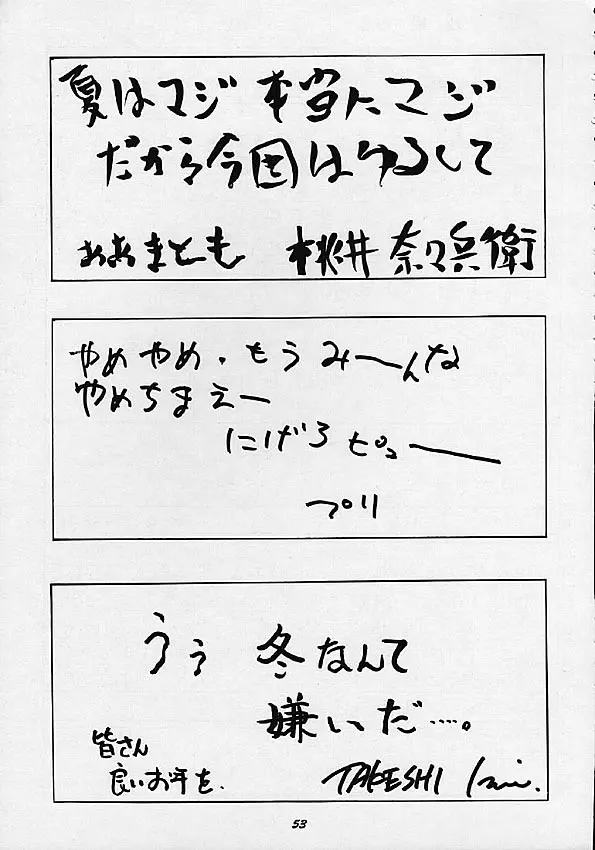 夏はマジ 本当にマジ
だから今回はゆるして
おおまとも 桃井 奈々兵衛
やめやめ、もうみ〜んな
やめちまえー
にげろ ピューー
プリ
うぅ 冬なんて
嫌いだ……。
皆さん
良いお年を.
TAKESHI
53